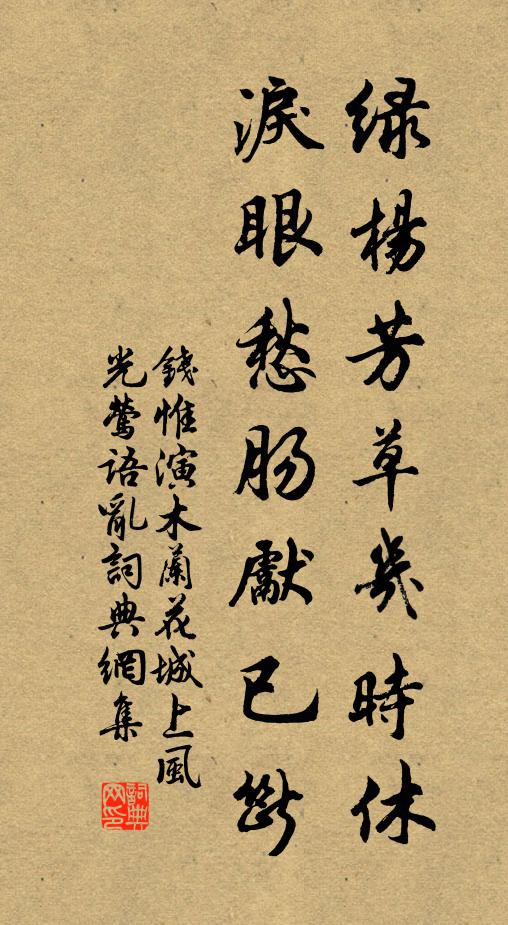 綠楊芳草幾時休
淚眼愁肠獻已斷
錢惟演木蘭花城上風
光鶯語亂詞典網集
詞典
网印